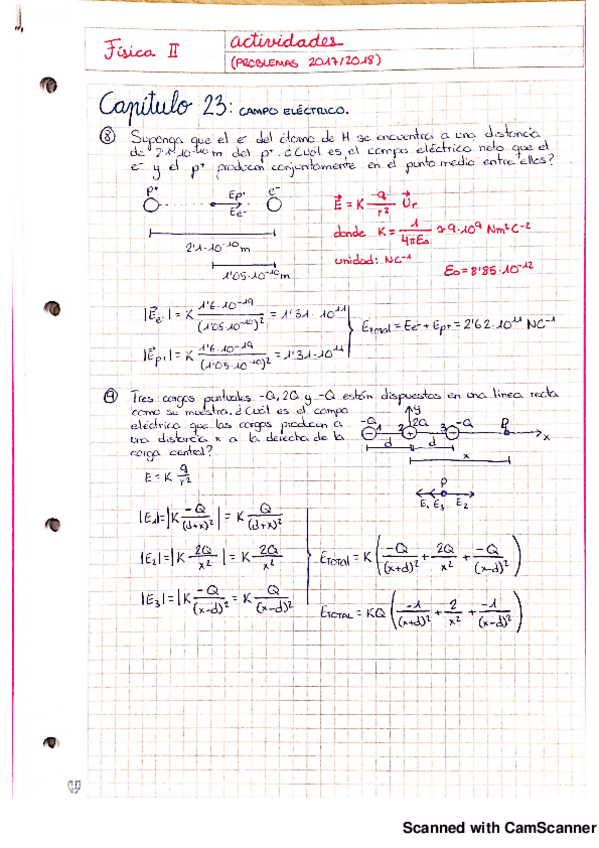 Física II
actividades
(PROBLEMAS 2017/2018)
Capítulo 23: CAMPO ELÉCTRICO.
⑧ Suponga que el e⁻ del átomo de H se encuentra a una distancia
de 2'1·10⁻¹⁰ m del p⁺. ¿Cuál es el campo eléctrico neto que el
e⁻ y el p⁺ producen conjuntamente en el punto medio entre ellos?
p⁺ Ep⁺ e⁻
Ee⁻
2'1·10⁻¹⁰ m
1'05·10⁻¹⁰ m
E⃗ = K q/r² U⃗r
donde K = 1/4πε₀ ≈ 9·10⁹ Nm²C⁻²
unidad: NC⁻¹
ε₀ = 8'85·10⁻¹²
|E⃗e⁻| = K 1'6·10⁻¹⁹/(1'05·10⁻¹⁰)² = 1'31·10¹¹
|E⃗p⁺| = K 1'6·10⁻¹⁹/(1'05·10⁻¹⁰)² = 1'31·10¹¹
Etotal = Ee⁻ + Ep⁺ = 2'62·10¹¹ NC⁻¹
⑨ Tres cargas puntuales -Q, 2Q y -Q están dispuestas en una línea recta
como se muestra. ¿Cuál es el campo
eléctrico que las cargas producen a
una distancia x a la derecha de la
carga central?
y
-Q 2Q -Q P
1 2 3 x
d d
x
E = K q/r²
P
E₁ E₃ E₂
|E₁| = |K -Q/(d+x)²| = K Q/(d+x)²
|E₂| = |K 2Q/x²| = K 2Q/x²
|E₃| = |K -Q/(x-d)² = K Q/(x-d)²
ETOTAL = K (-Q/(x+d)² + 2Q/x² + -Q/(x-d)²)
ETOTAL = KQ (-1/(x+d)² + 2/x² + -1/(x-d)²)
Scanned with CamScanner